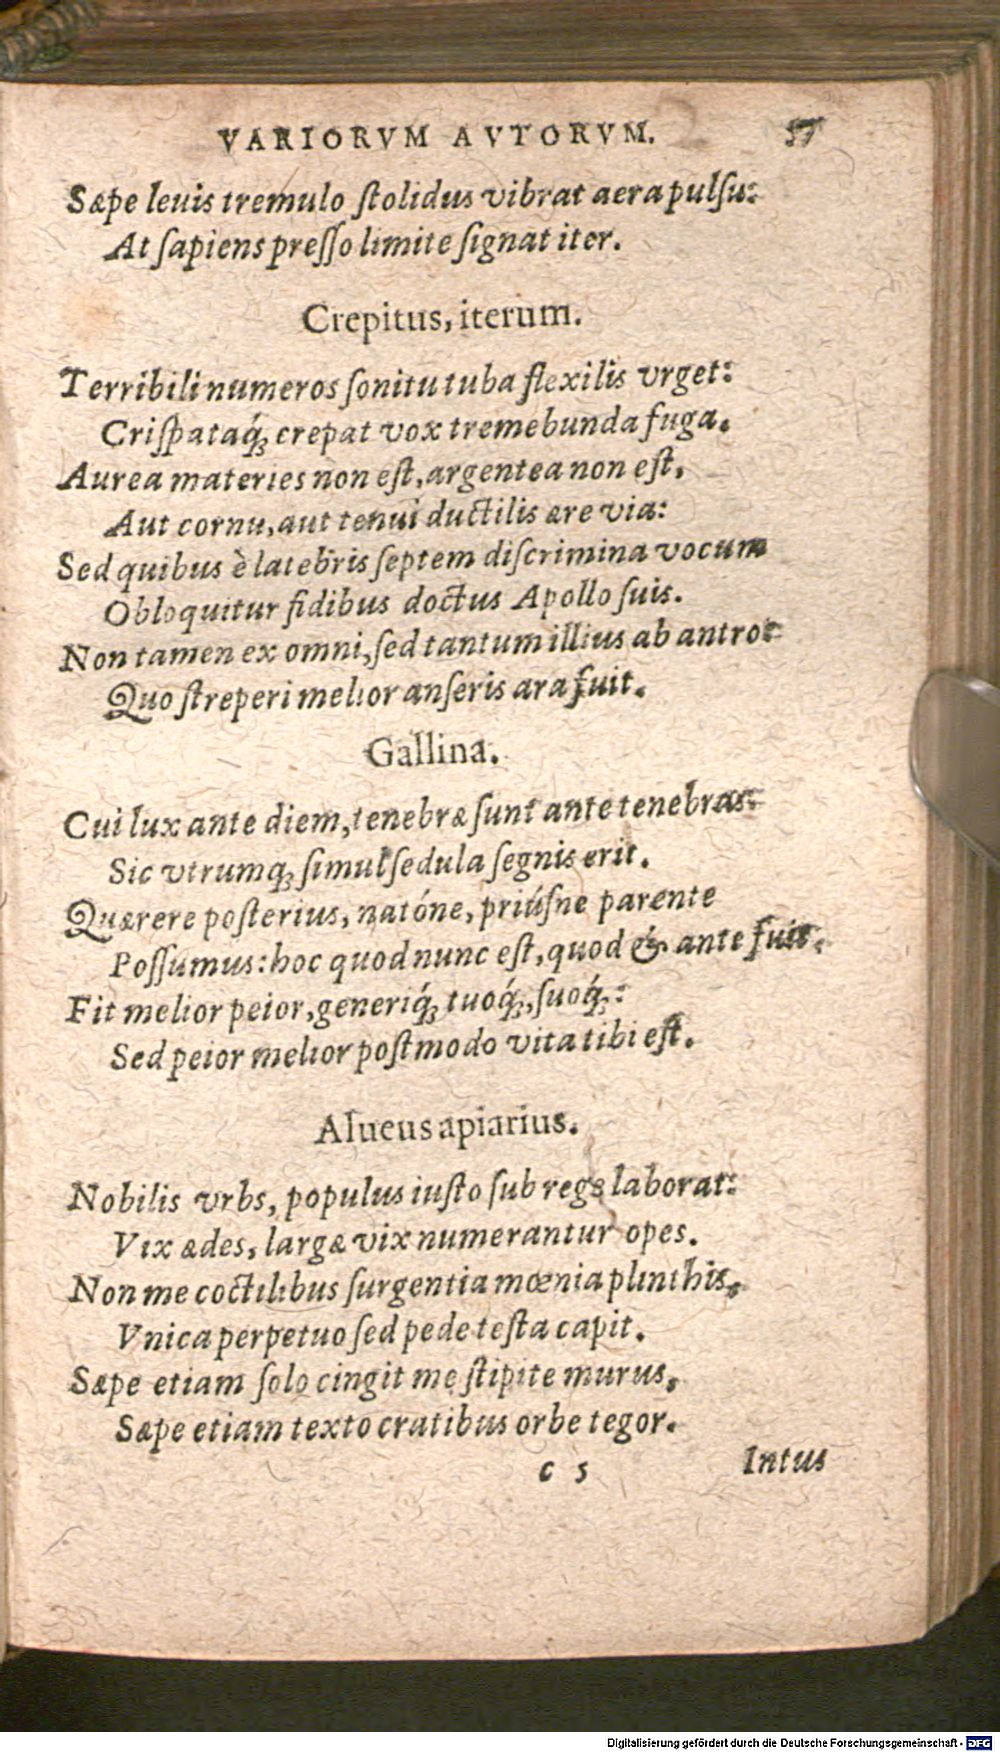 VARIORVM AVTORVM. 57
Sæpe leuis tremulo ſtolidus vibrat aera pulſu:
At ſapiens preſſo limite ſignat iter.
Crepitus, iterum.
Terribili numeros ſonitu tuba flexilis vrget:
Criſpataq́ꝫ crepat vox tremebunda fuga.
Aurea materies non eſt, argentea non eſt,
Aut cornu, aut tenui ductilis ære via:
Sed quibus è latebris ſeptem diſcrimina vocum
Obloquitur fidibus doctus Apollo ſuis.
Non tamen ex omni, ſed tantum illius ab antro:
Quo ſtreperi melior anſeris ara fuit.
Gallina.
Cui lux ante diem, tenebræ ſunt ante tenebras:
Sic vtrumqꝫ ſimul ſedula ſegnis erit.
Quærere poſterius, natóne, priúſne parente
Poſſumus: hoc quod nunc eſt, quod & ante fuit.
Fit melior peior, generiq́ꝫ tuoq́ꝫ, ſuoq́ꝫ:
Sed peior melior poſtmodo vita tibi eſt.
Alueus apiarius.
Nobilis vrbs, populus iuſto ſub rege laborat:
Vix ædes, largæ vix numerantur opes.
Non me coctilibus ſurgentia mœnia plinthis,
Vnica perpetuo ſed pede teſta capit.
Sæpe etiam ſolo cingit me ſtipite murus,
Sæpe etiam texto cratibus orbe tegor.
c 5 Intus
Digitalisierung gefördert durch die Deutsche Forschungsgemeinschaft - DFG